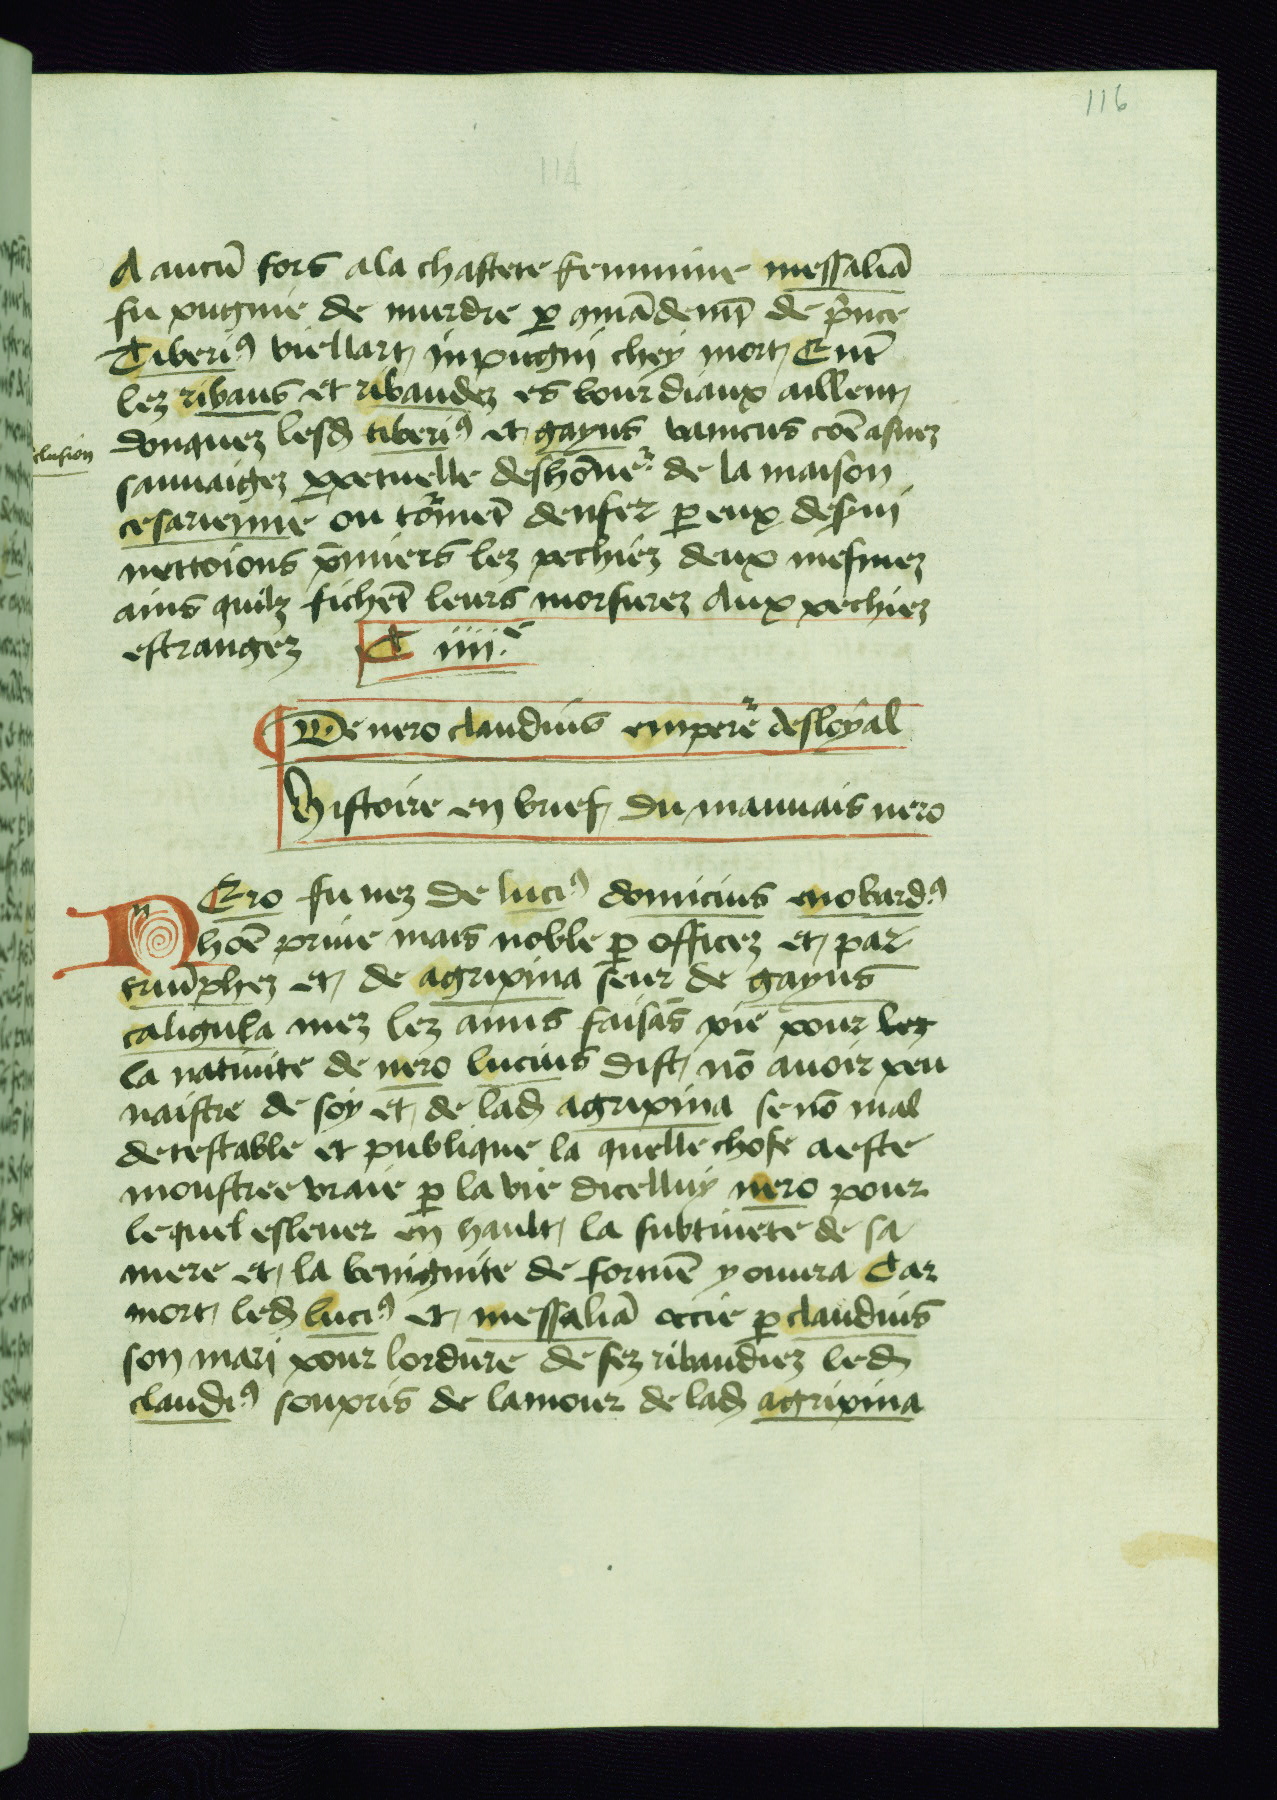 116
114
A aucū fors a la chastete feminine messaliā
fu pugnie de murdre ꝑ 9mādemt̄ de pʳnce
Tiberiꝰ viellart inpugni chey mort Entͤ
lez ribaus et ribaudez es bourdiaux aillent
donquez lesd tiberiꝰ et gayus vaincus cōe asnez
clusion
sauuaigez ꝑpetuelle deshōneʳ de la maison
cesarienne ou tormēt denfer ꝑ eux desseui
nettoions p̄miers lez pechiez deux mesmez
ains quilz fichēt leurs morsurez Aux pechiez
estrangez C iiii.ͤ
¶ De nero claudius empereʳ desloyal
histoire en brief du mauuais nero
nEro fu nez de luciꝰ domicius enobardꝰ
hōe priue mais noble ꝑ officez et par
triūphez et de agripina seur de gayus
caligula niez lez amis faisās pie pour lez
la natiuite de nero lucius dist nō auoir peu
naistre de soy et de lad agripina se nō mal
detestable et publique la quelle chose a este
monstree vraie ꝑ la vie dicelluy nero pour
lequel esleuer en hault la subtiuete de sa
mere et la benignite de fortūe y ouura Car
mort led luciꝰ et messaliā occie ꝑ claudius
son mari pour lordure de sez ribaudiez led
claudiꝰ soupris de lamour de lad agripina